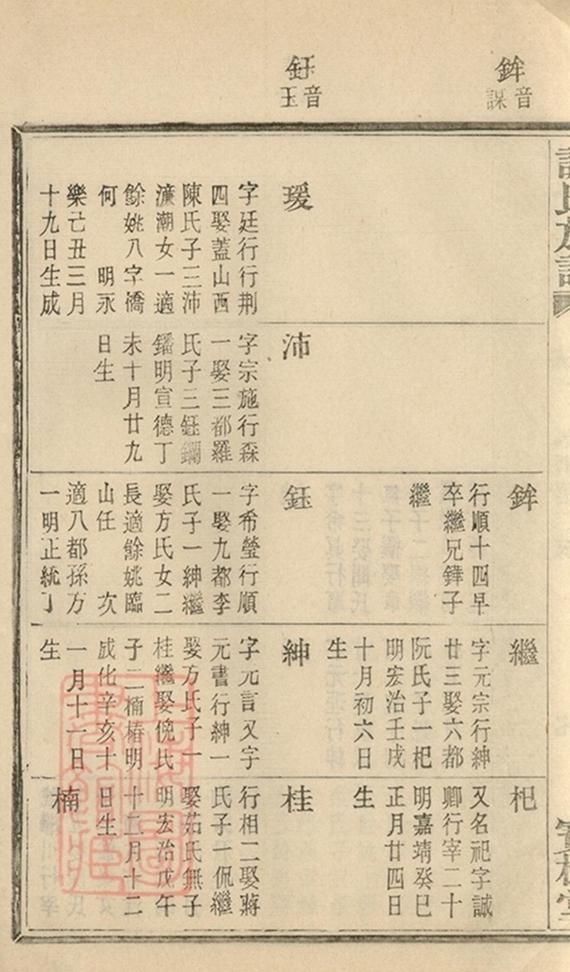 鉾
音
謀
鈺
音
玉
瑗
字廷行行荆
四娶蓋山西
陳氏子三沛
潼潮女一適
餘姚八字橋
何　明永
樂己丑三月
十九日生成
沛
字宗施行森
一娶三都羅
氏子三鈺鐗
鐇明宣德丁
未十月廿九
日生
鉾
行順十四早
卒繼兄鏵子
繼
鈺
字希瑩行順
一娶九都李
氏子一紳繼
娶方氏女二
長適餘姚臨
山任　次
適八都孫方
一明正統丁
繼
字元宗行紳
廿三娶六都
阮氏子一杞
明宏治壬戌
十月初六日
生
紳
字元言又字
元書行紳一
娶方氏子一
桂繼娶倪氏
子二楠椿明
成化辛亥十
一月十一日
生
杞
又名祀字誠
卿行宰二十
明嘉靖癸巳
正月廿四日
生
桂
行相二娶蔣
氏子一侃繼
娶茹氏無子
明宏治戊午
十二月十二
日生
楠